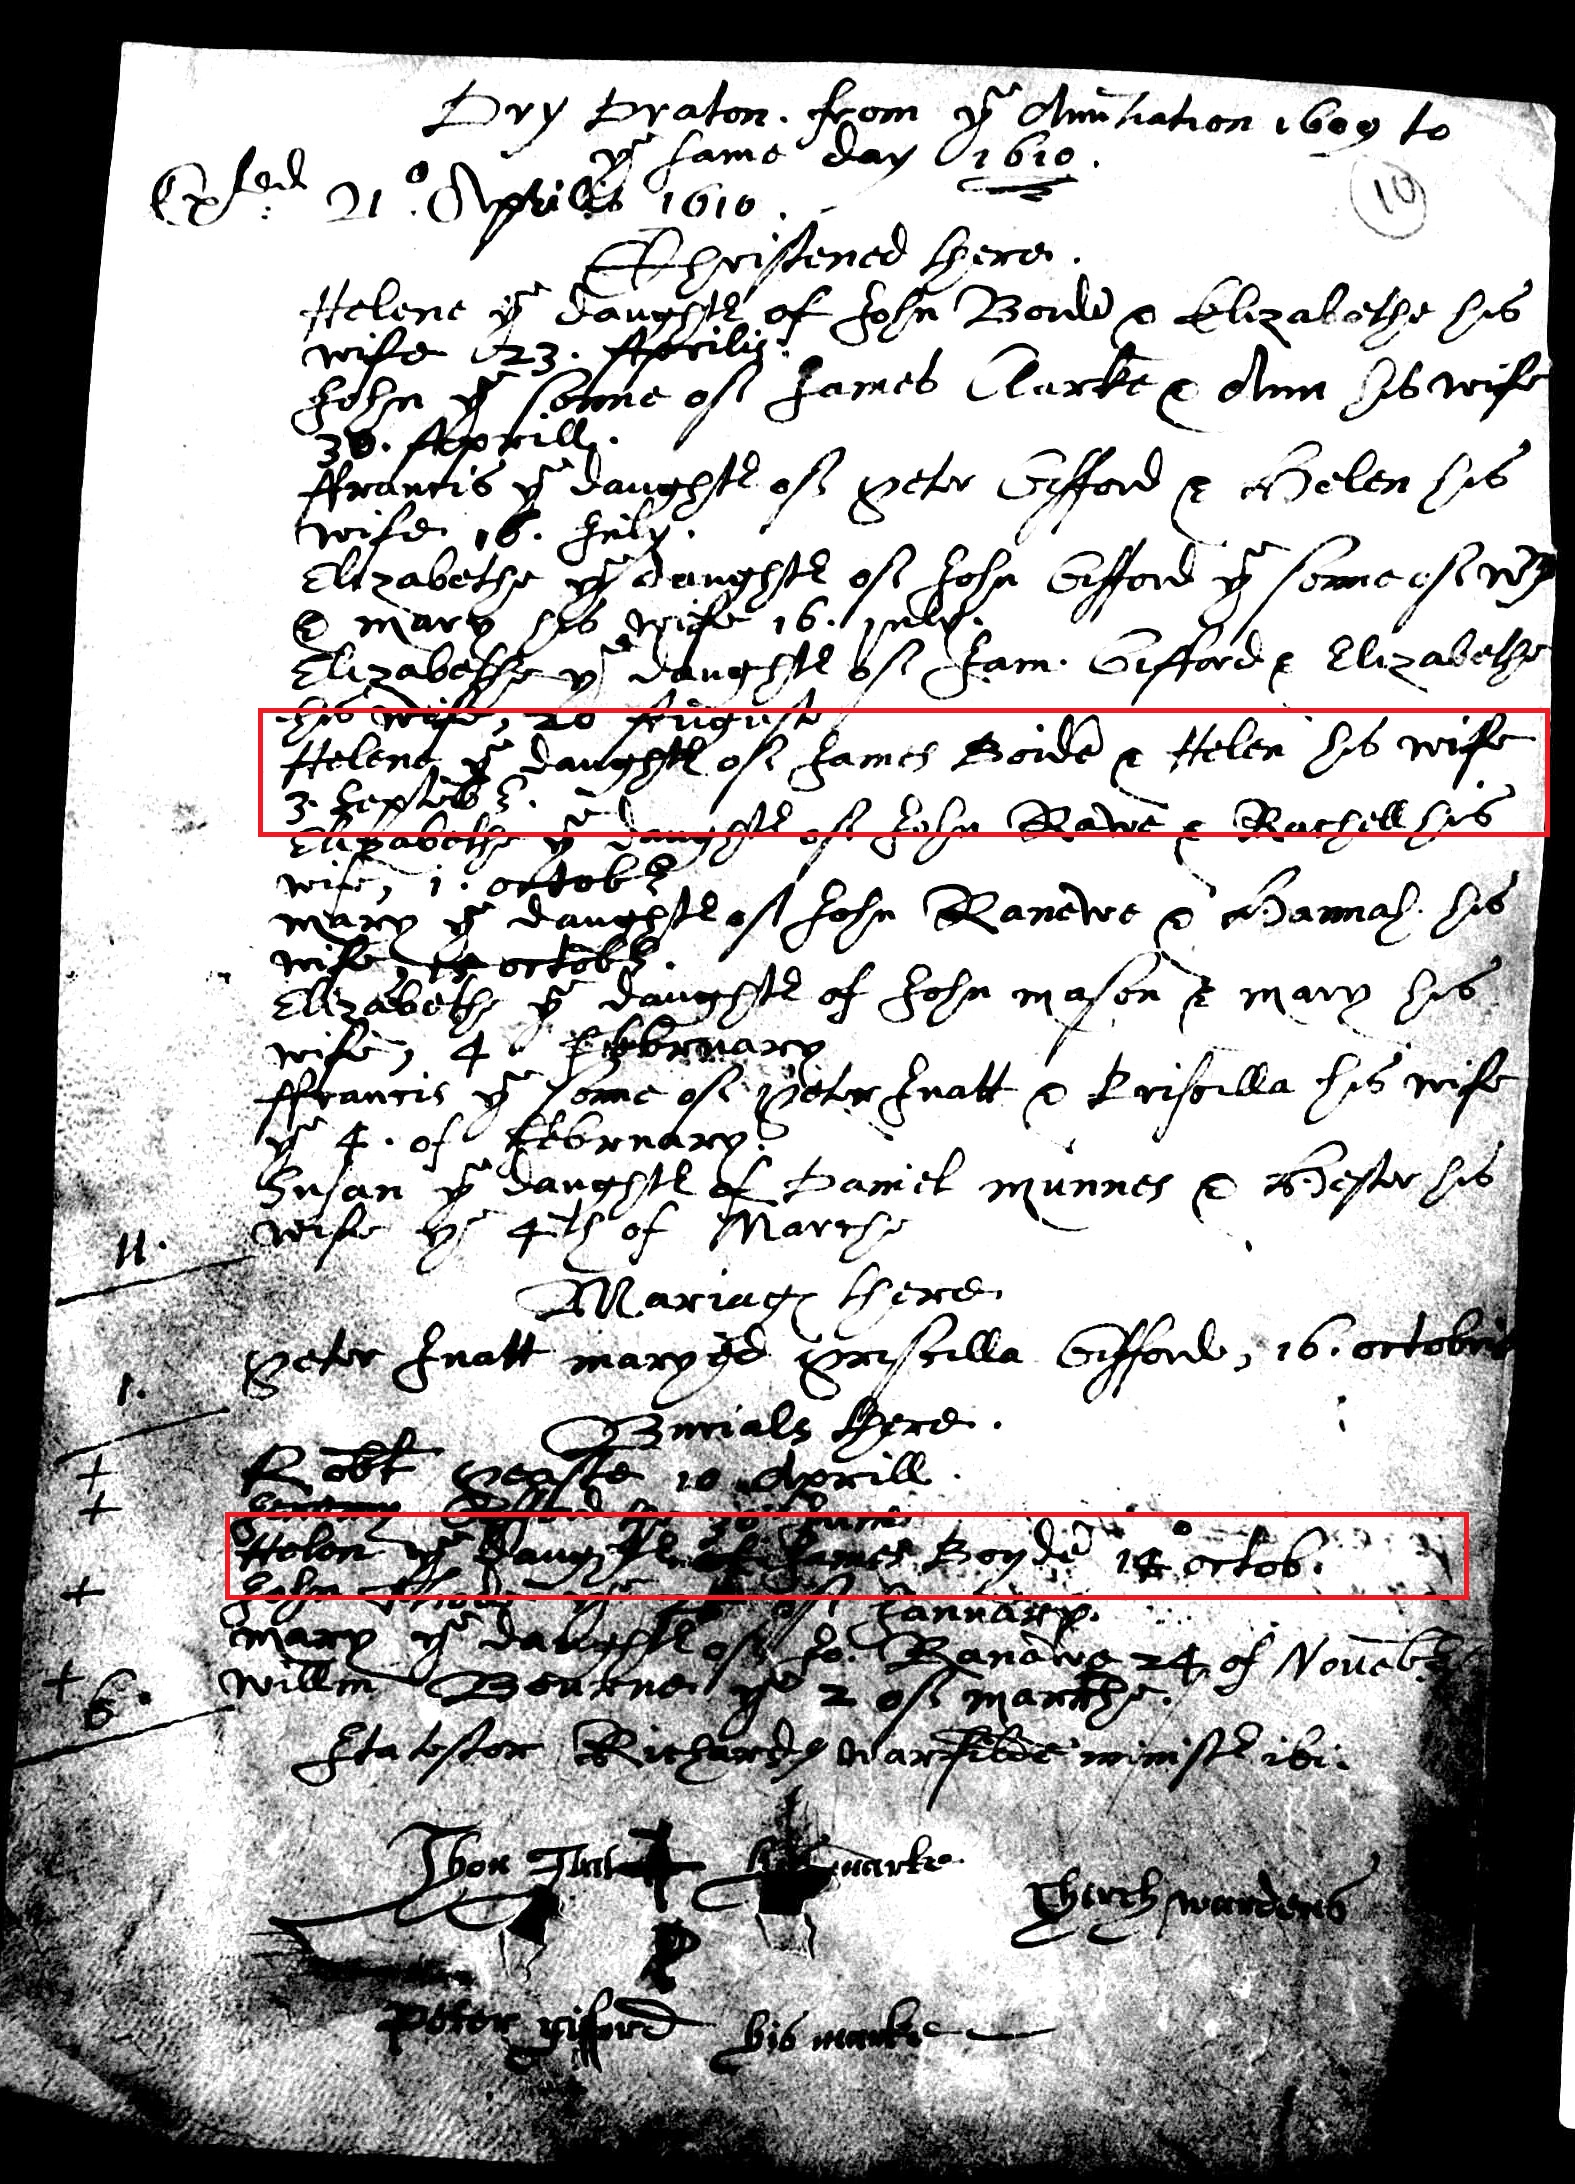 Dry Draton. from ye Anutiation 1609 to
ye same day 1610.
21o. Aprilis 1610.
10
Christened there.
Helene ye daught of John Boide & Elizabethe his
wife 23. Aprilis.
John ye sonne of James Clarke & Ann his wife
30. Aprill.
ffrancis ye daught of Peter Gifford & Helen his
wife 16. July.
Elizabethe ye daught of John Gifford ye sonne of Wm
& mary his wife 16. July.
Elizabethe ye daught of Jam. Gifford & Elizabethe
his wife, 20 August
Helene ye daught of James Boide & Helen his wife
3. Septeb.
Elizabethe ye daught of John Rawe & Rachell his
wife, 1. octob
mary ye daught of John Ranewe & Hannah his
wife, octob.
Elizabethe ye daught of John mason & mary his
wife, 4 February
ffrancis ye sonne of Peter Inatt & Priscilla his wife
ye 4. of February.
Susan ye daught of Daniel munnes & Hester his
wife ye 4th of Marche
11.
Mariag there
Peter Inatt maryed Priscilla Gifforde, 16. octobris
1.
Burials there.
Robt Peaste 10 Aprill.
30 June
Helen ye daught of James Boyde 14o octob.
John ye of January.
mary ye daught of Jo. Ranewe 24 of Novemb
willm Bourne ye 2 of marche.
6.
Ita testor Richard Warfilde minist ibi.
Jhon his marke
Cherch wardens
Peter gifford his marke